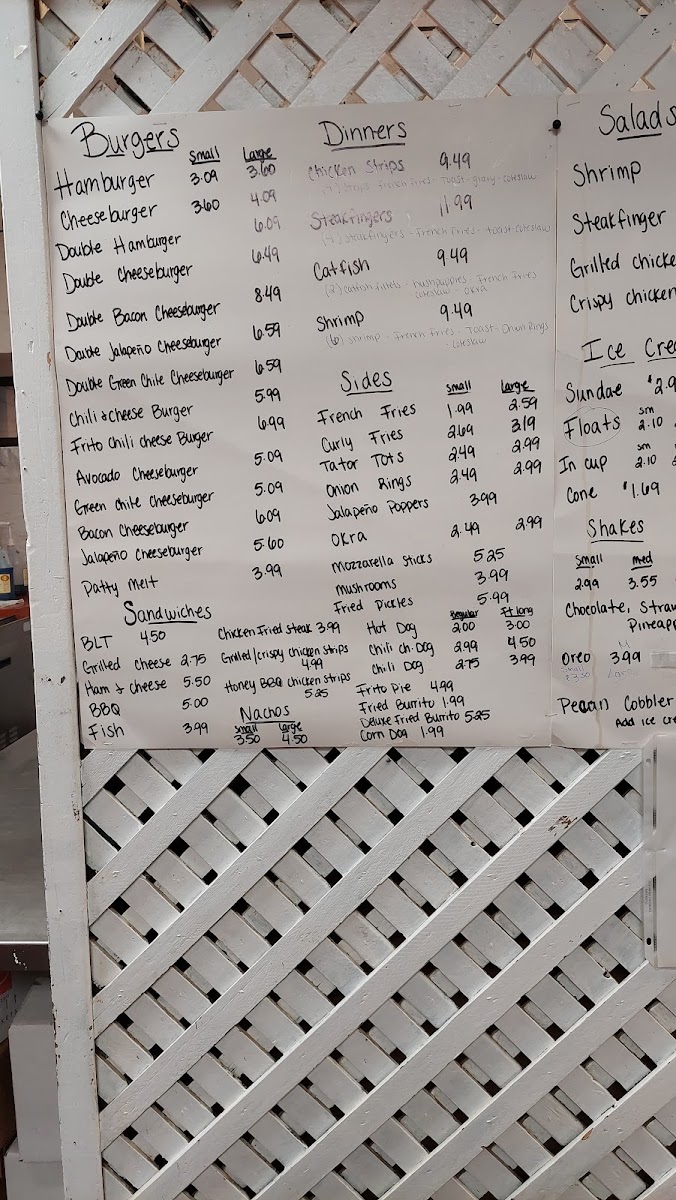 Burgers
Small Large
Hamburger 3.09 3.60
Cheeseburger 3.60 4.09
Double Hamburger 6.09
Double Cheeseburger 6.49
Double Bacon Cheeseburger 8.49
Double Jalapeño Cheeseburger 6.59
Double Green Chile Cheeseburger 6.59
Chili & cheese Burger 5.99
Frito Chili cheese Burger 6.99
Avocado Cheeseburger 5.09
Green chile cheeseburger 5.09
Bacon Cheeseburger 6.09
Jalapeño Cheeseburger 5.60
Patty melt 3.99
Sandwiches
BLT 4.50
Grilled Cheese 2.75
Ham & cheese 5.50
BBQ 5.00
Fish 3.99
Chicken Fried Steak 3.99
Grilled/crispy chicken strips
4.99
Honey BBQ chicken strips
5.25
Nachos
Small Large
3.50 4.50
Dinners
Chicken Strips 9.49
strips - french fries - Toast - gravy - coleslaw
Steakfingers 11.99
steakfingers - French Fries - toast - coleslaw
Catfish 9.49
(2) catfish filets - hushpuppies - French Fries
coleslaw - okra
Shrimp 9.49
(6) shrimp - French Fries - Toast - Onion Rings
coleslaw
Sides
Small Large
French Fries 1.99 2.59
Curly Fries 2.69 3.19
Tator Tots 2.49 2.99
Onion Rings 2.49 2.99
Jalapeño Poppers 3.99
Okra 2.49 2.99
Mozzarella Sticks 5.25
Mushrooms 3.99
Fried Pickles 5.99
Regular Ft long
Hot Dog 2.00 3.00
Chili ch. Dog 2.99 4.50
Chili Dog 2.75 3.99
Frito Pie 4.99
Fried Burrito 1.99
Deluxe Fried Burrito 5.25
Corn Dog 1.99
Salads
Shrimp
Steakfinger
Grilled chicke
Crispy chicken
Ice Cre
Sundae $2.9
sm
Floats 2.10
sm
In cup 2.10
Cone $1.69
Shakes
Small med
2.99 3.55
Chocolate, Straw
Pineapp
Oreo 3.99
Pecan Cobbler
Add ice cre